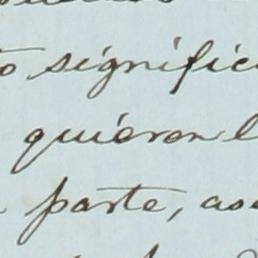 signific
quieren l
parte, as